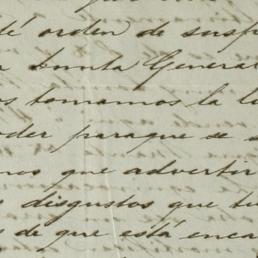 dé orden de susp
a Junta General
os tomamos la li
oder paraque se
mos que advertir
s disgustos que tu
s de que está enca